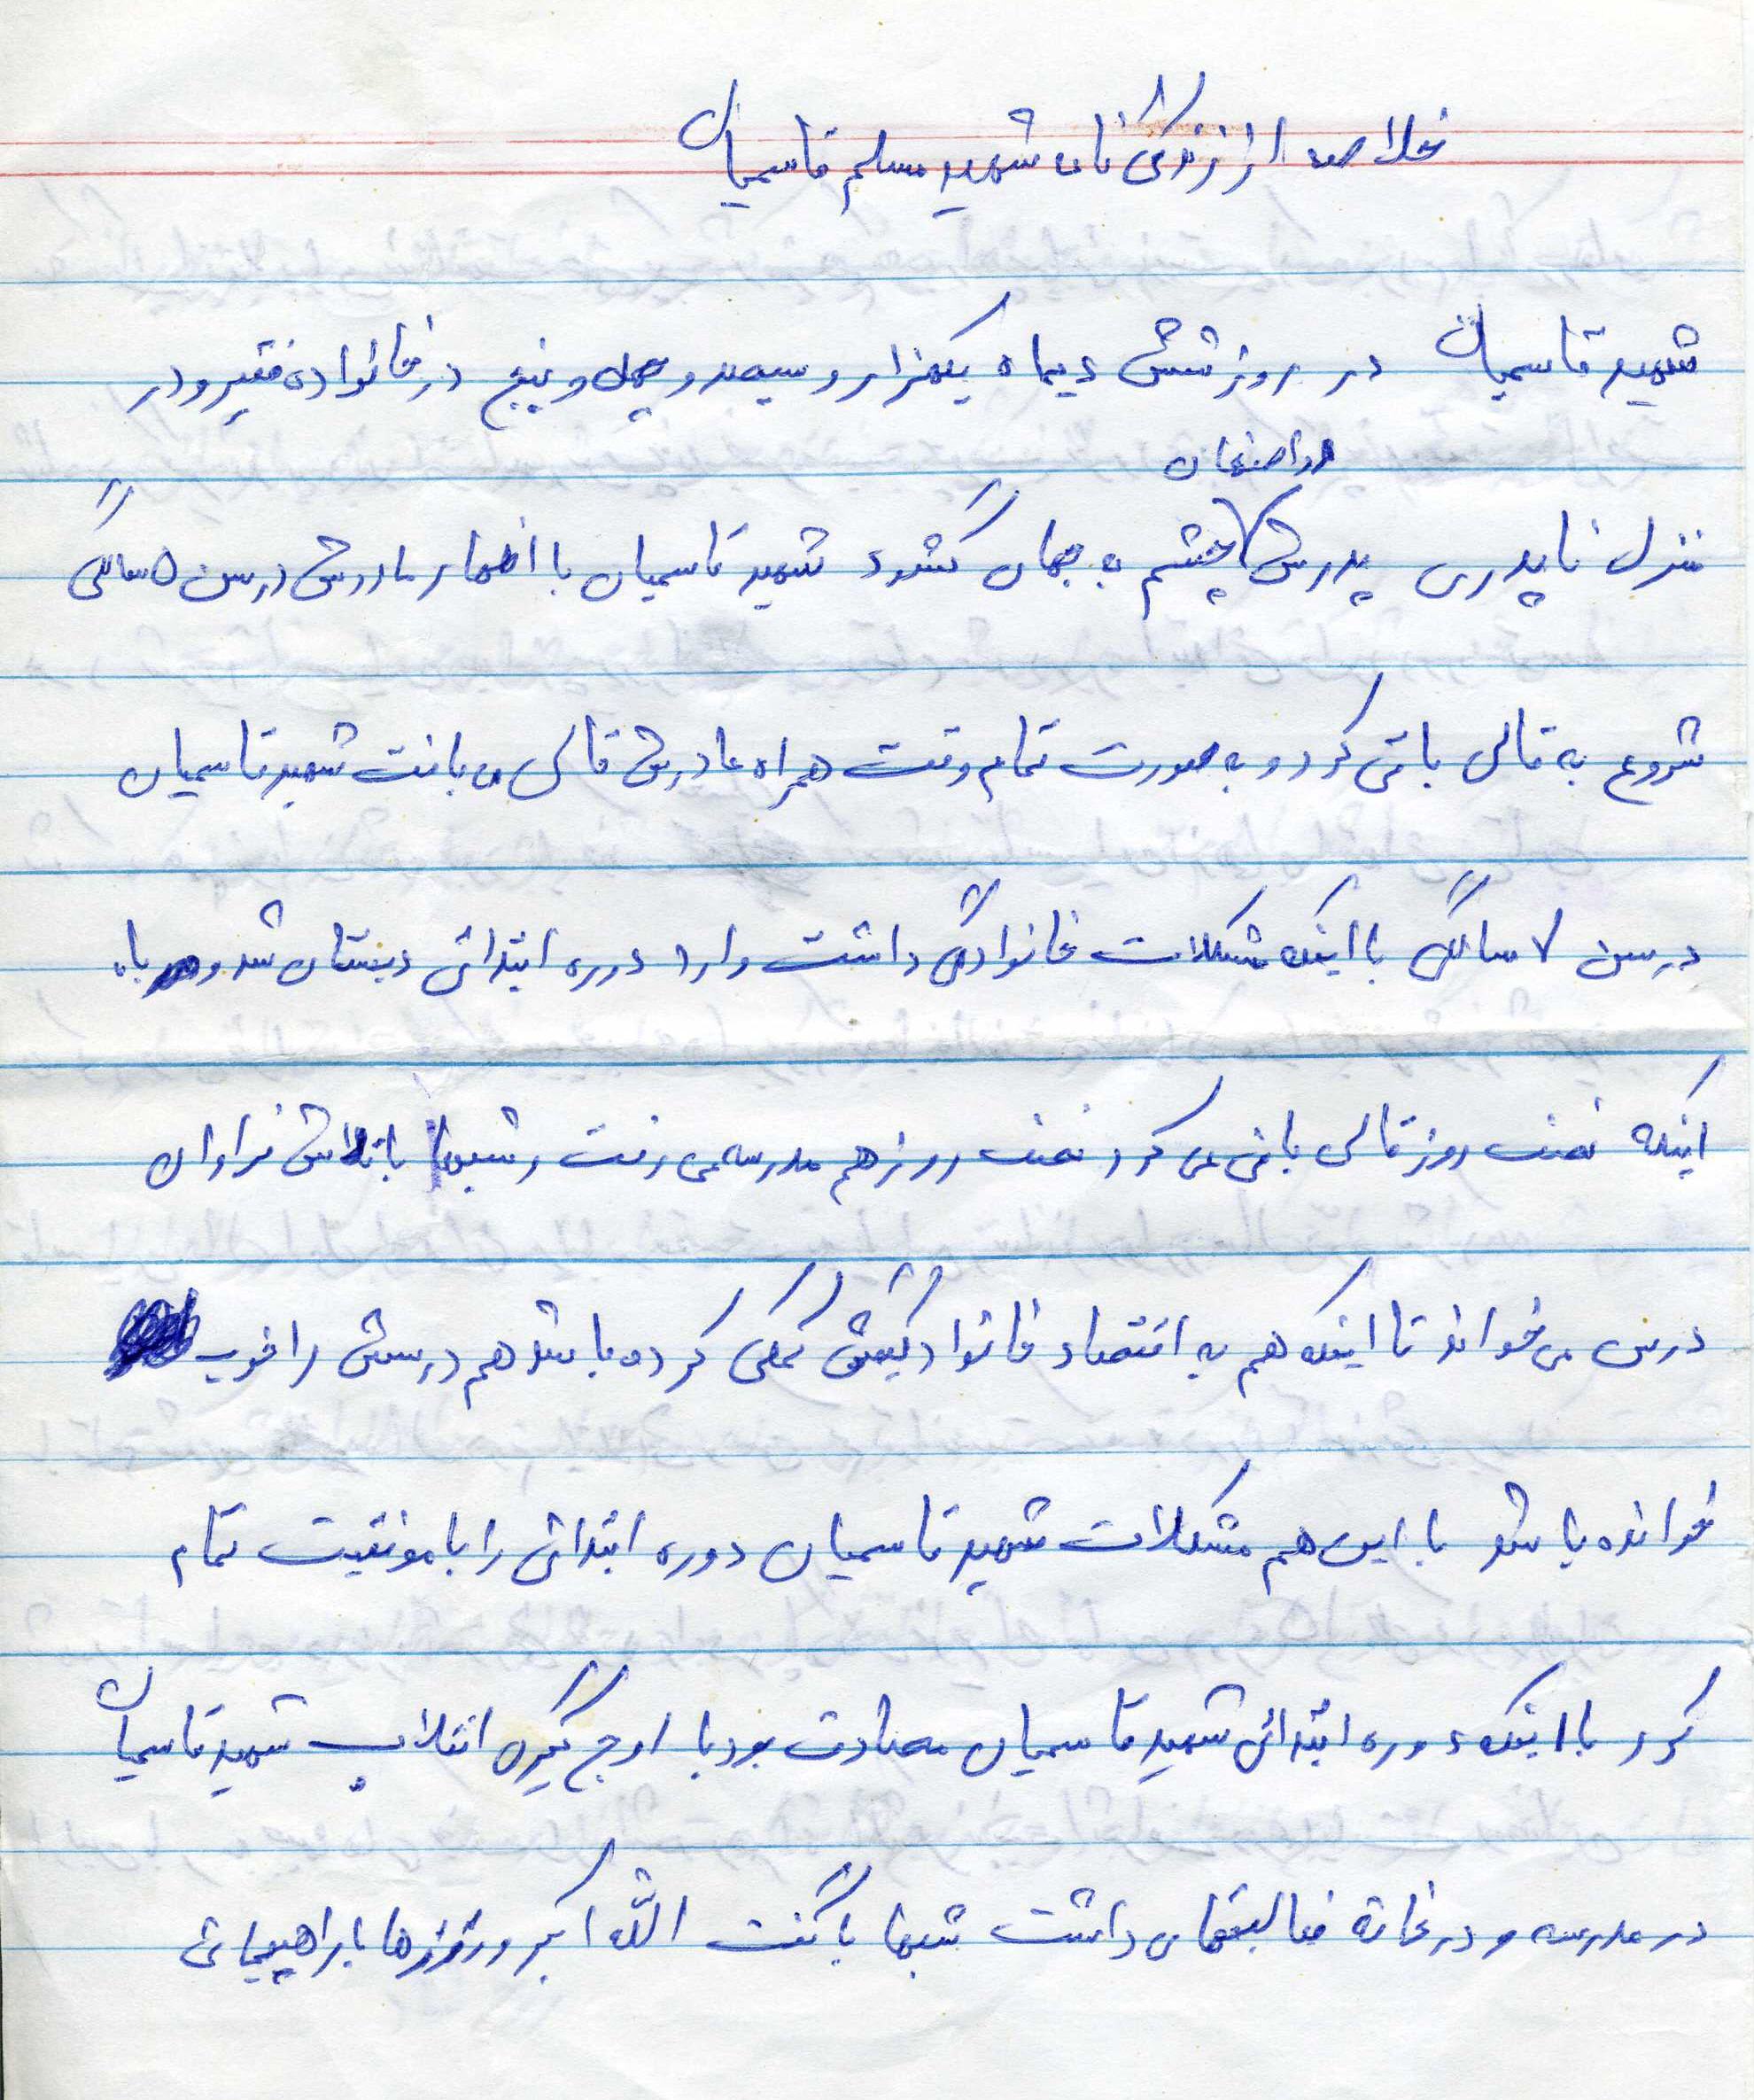 خلاصه از زندگی نامه شهید مسلم قاسمیان
شهید قاسمیان در روز شش دیماه یکهزار و سیصد و چهل و پنج در خانواده فقیر و در
در اصفهان
منزل ناپدری پدرش چشم به جهان گشود شهید قاسمیان با اظهار مادرش در سن ۵ سالگی
شروع به قالی بافی کرد و به صورت تمام وقت همراه مادرش قالی می بافت شهید قاسمیان
در سن ۷ سالگی با اینکه مشکلات خانوادگی داشت وارد دوره ابتدائی دبستان شد و با
اینکه نصف روز قالی بافی می کرد نصف روز هم مدرسه می رفت و شبها با تلاش فراوان
درس می خواند تا اینکه هم به اقتصاد خانوادگیش کمکی کرده باشد هم درسش را خوب
خوانده باشد با این هم مشکلات شهید قاسمیان دوره ابتدائی را با موفقیت تمام
کرد با اینکه دوره ابتدائی شهید قاسمیان مصادف بود با اوج گیری انقلاب شهید قاسمیان
در مدرسه و در خانه فعالیتهای داشت شبها با گفت الله اکبر و روزها با راهپیمائی